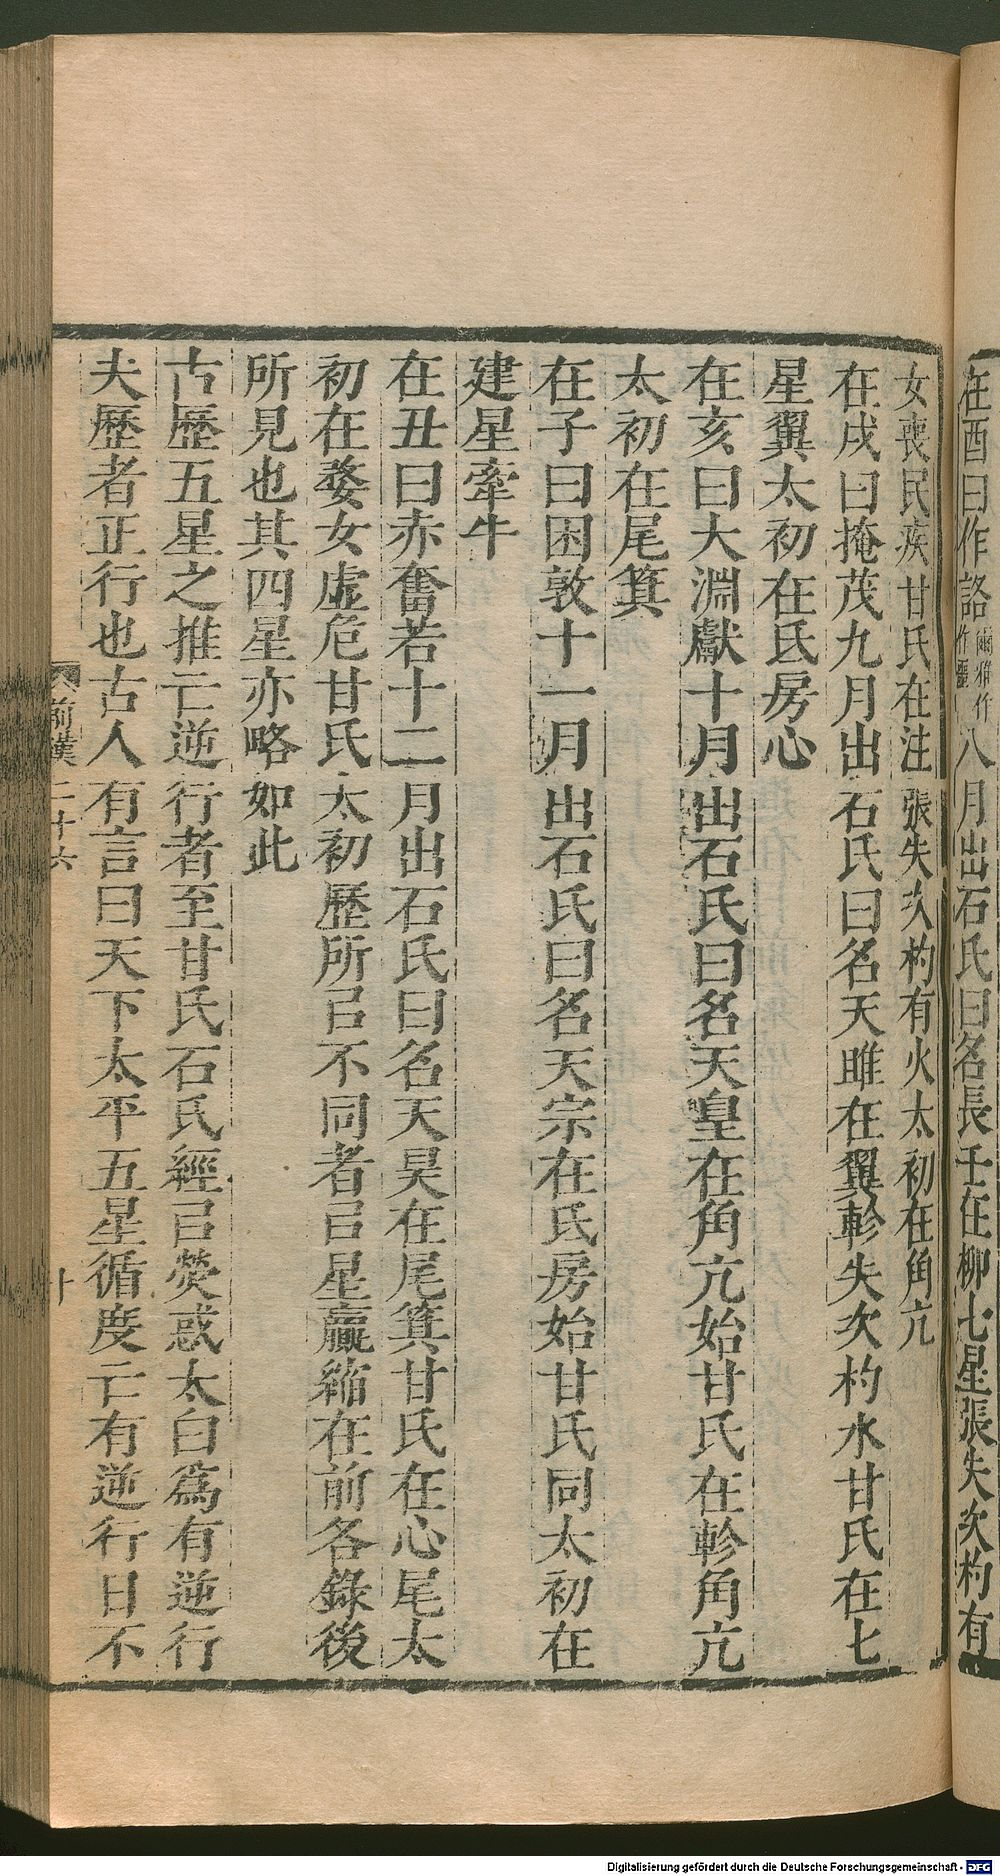 在酉曰作詻爾雅作作噩八月出石氏曰名長壬在柳七星張失次杓有
女喪民疾甘氏在注張失次杓有火太初在角亢
在戌曰掩茂九月出石氏曰名天雎在翼軫失次杓水甘氏在七
星翼太初在氐房心
在亥曰大淵獻十月出石氏曰名天皇在角亢始甘氏在軫角亢
太初在尾箕
在子曰困敦十一月出石氏曰名天宗在氐房始甘氏同太初在
建星牽牛
在丑曰赤奮若十二月出石氏曰名天昊在尾箕甘氏在心尾太
初在婺女虛危甘氏太初歷所㠯不同者㠯星贏縮在前各錄後
所見也其四星亦略如此
古歷五星之推亡逆行者至甘氏石氏經㠯熒惑太白爲有逆行
夫歷者正行也古人有言曰天下太平五星循度亡有逆行日不
前漢二十六
十
Digitalisierung gefördert durch die Deutsche Forschungsgemeinschaft - DFG